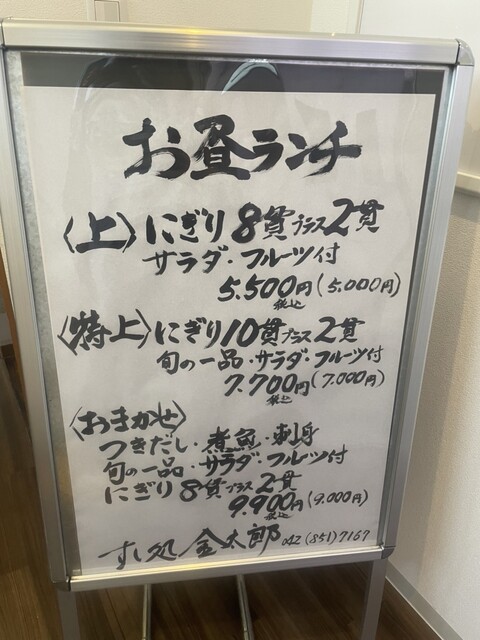 お昼ランチ
〈上〉にぎり8貫プラス2貫
サラダ・フルーツ付
5.500円(5.000円)
税込
〈特上〉にぎり10貫プラス2貫
旬の一品・サラダ・フルーツ付
7.700円(7.000円)
税込
〈おまかせ〉
つきだし・煮魚・刺身
旬の一品・サラダ・フルーツ付
にぎり8貫プラス2貫
9.900円(9.000円)
税込
すし処 金太郎 042(851)7167